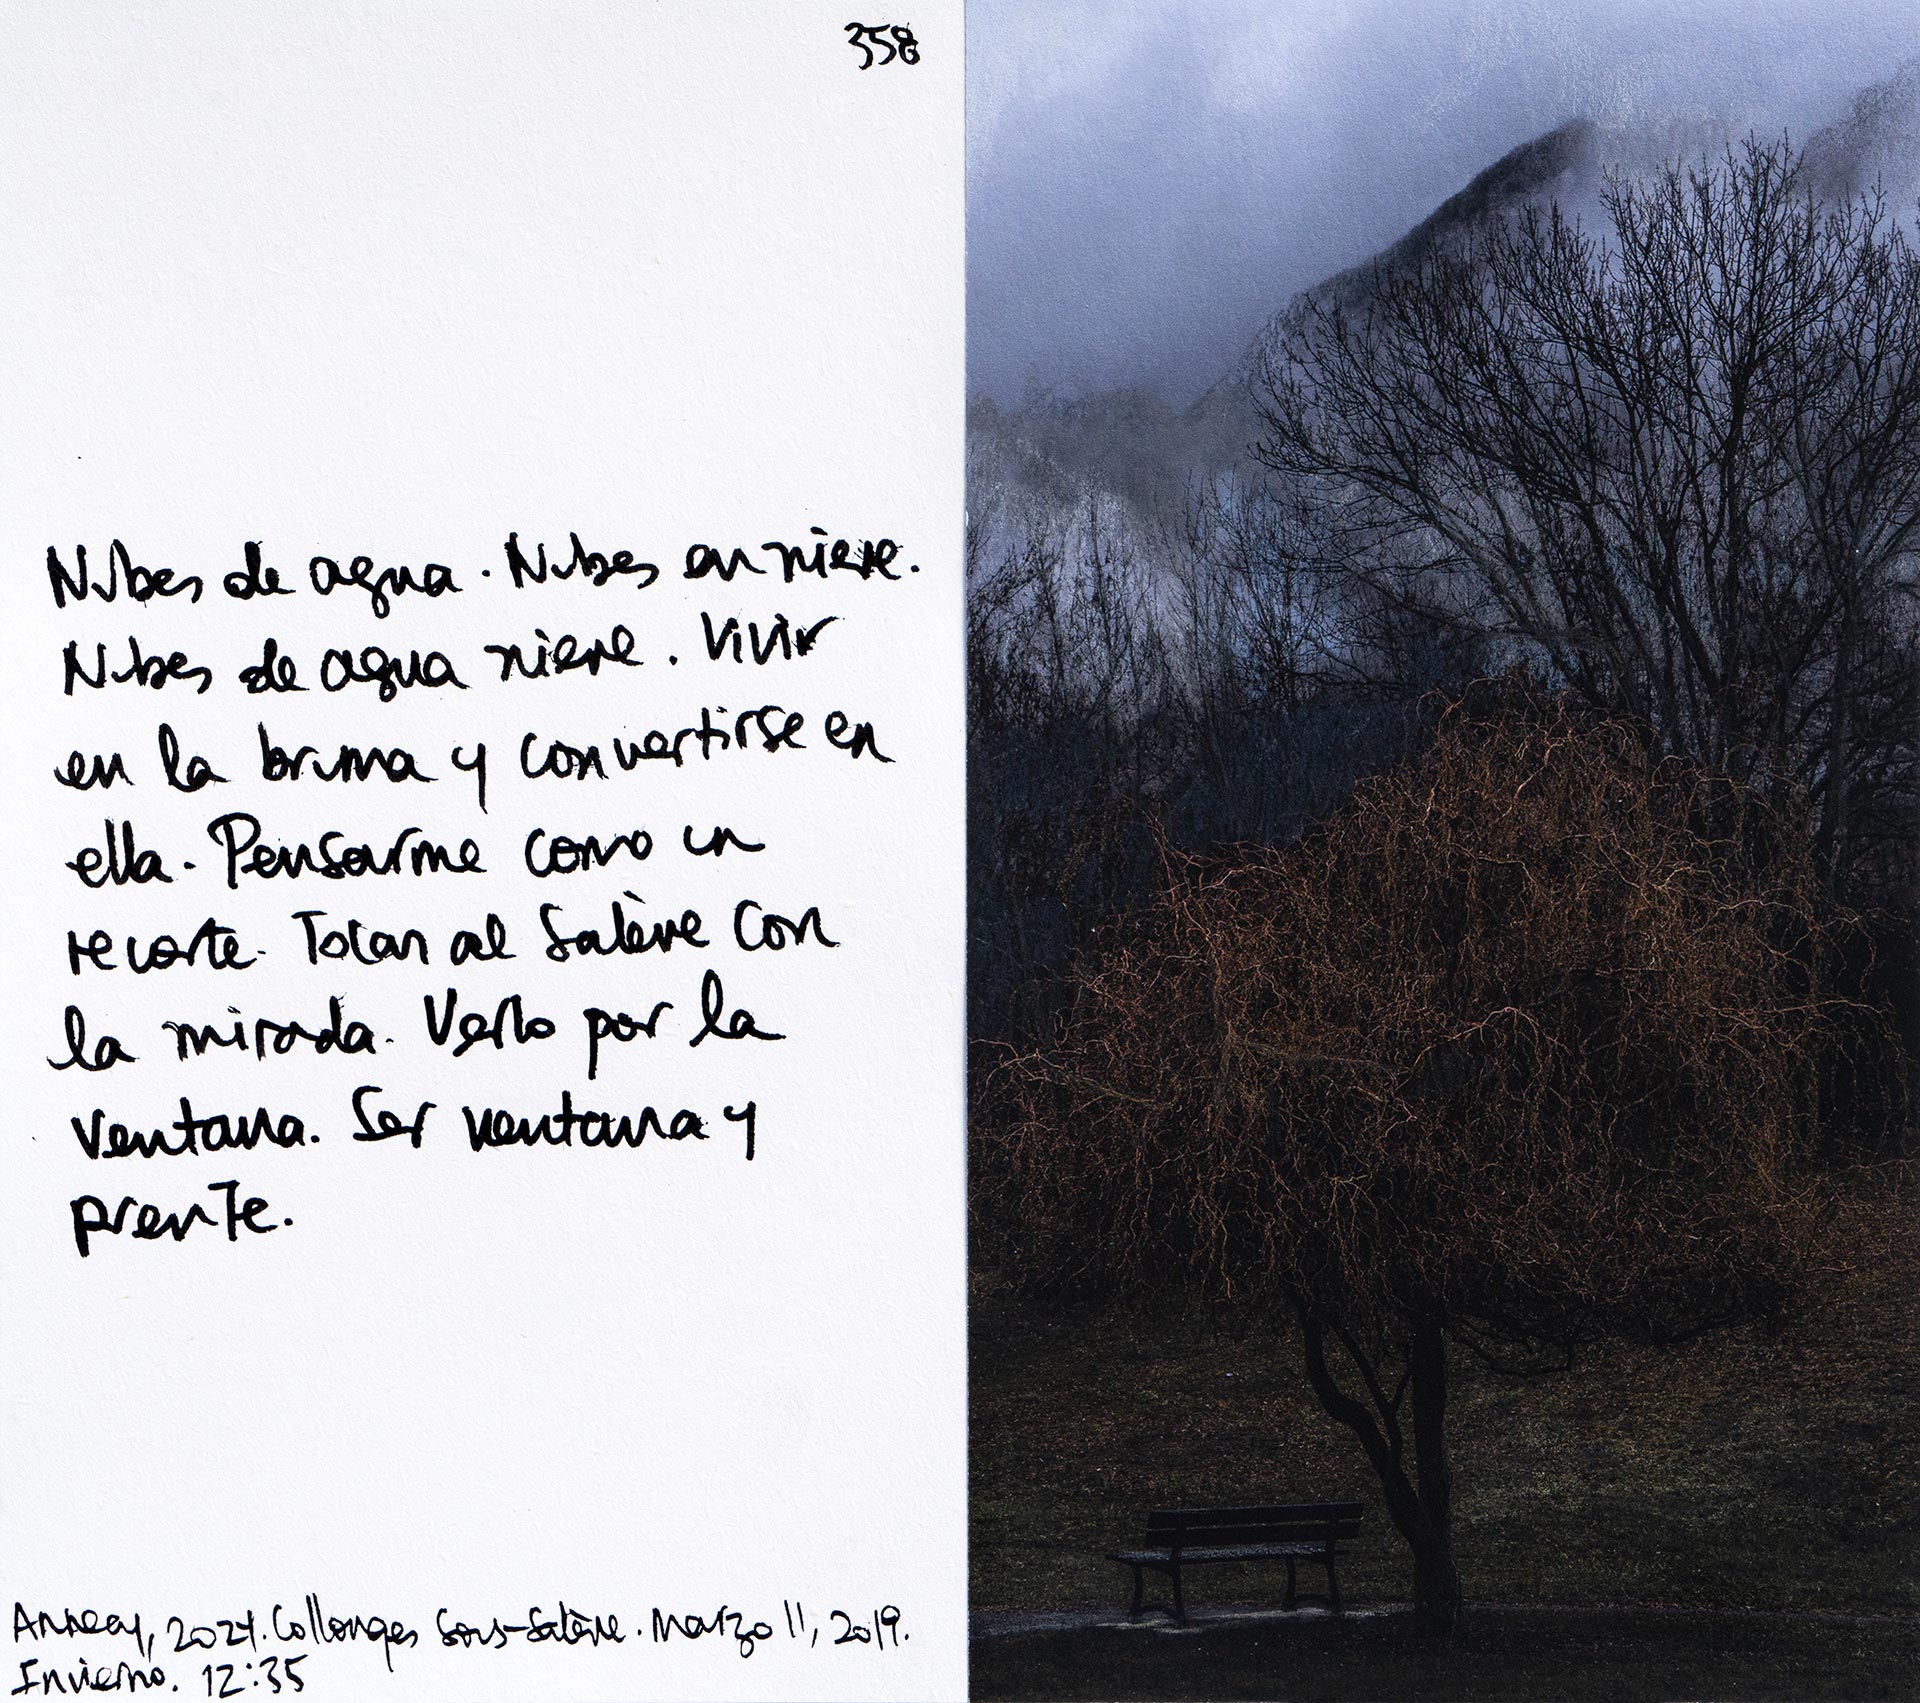 358
Nubes de agua. Nubes en nieve.
Nubes de agua nieve. Vivir
en la bruma y convertirse en
ella. Pensarme como un
recorte. Tocar al Salève con
la mirada. Verlo por la
ventana. Ser ventana y
prente.
Annecy, 2021. Collonges Sous-Salève. Marzo 11, 2019.
Invierno. 12:35